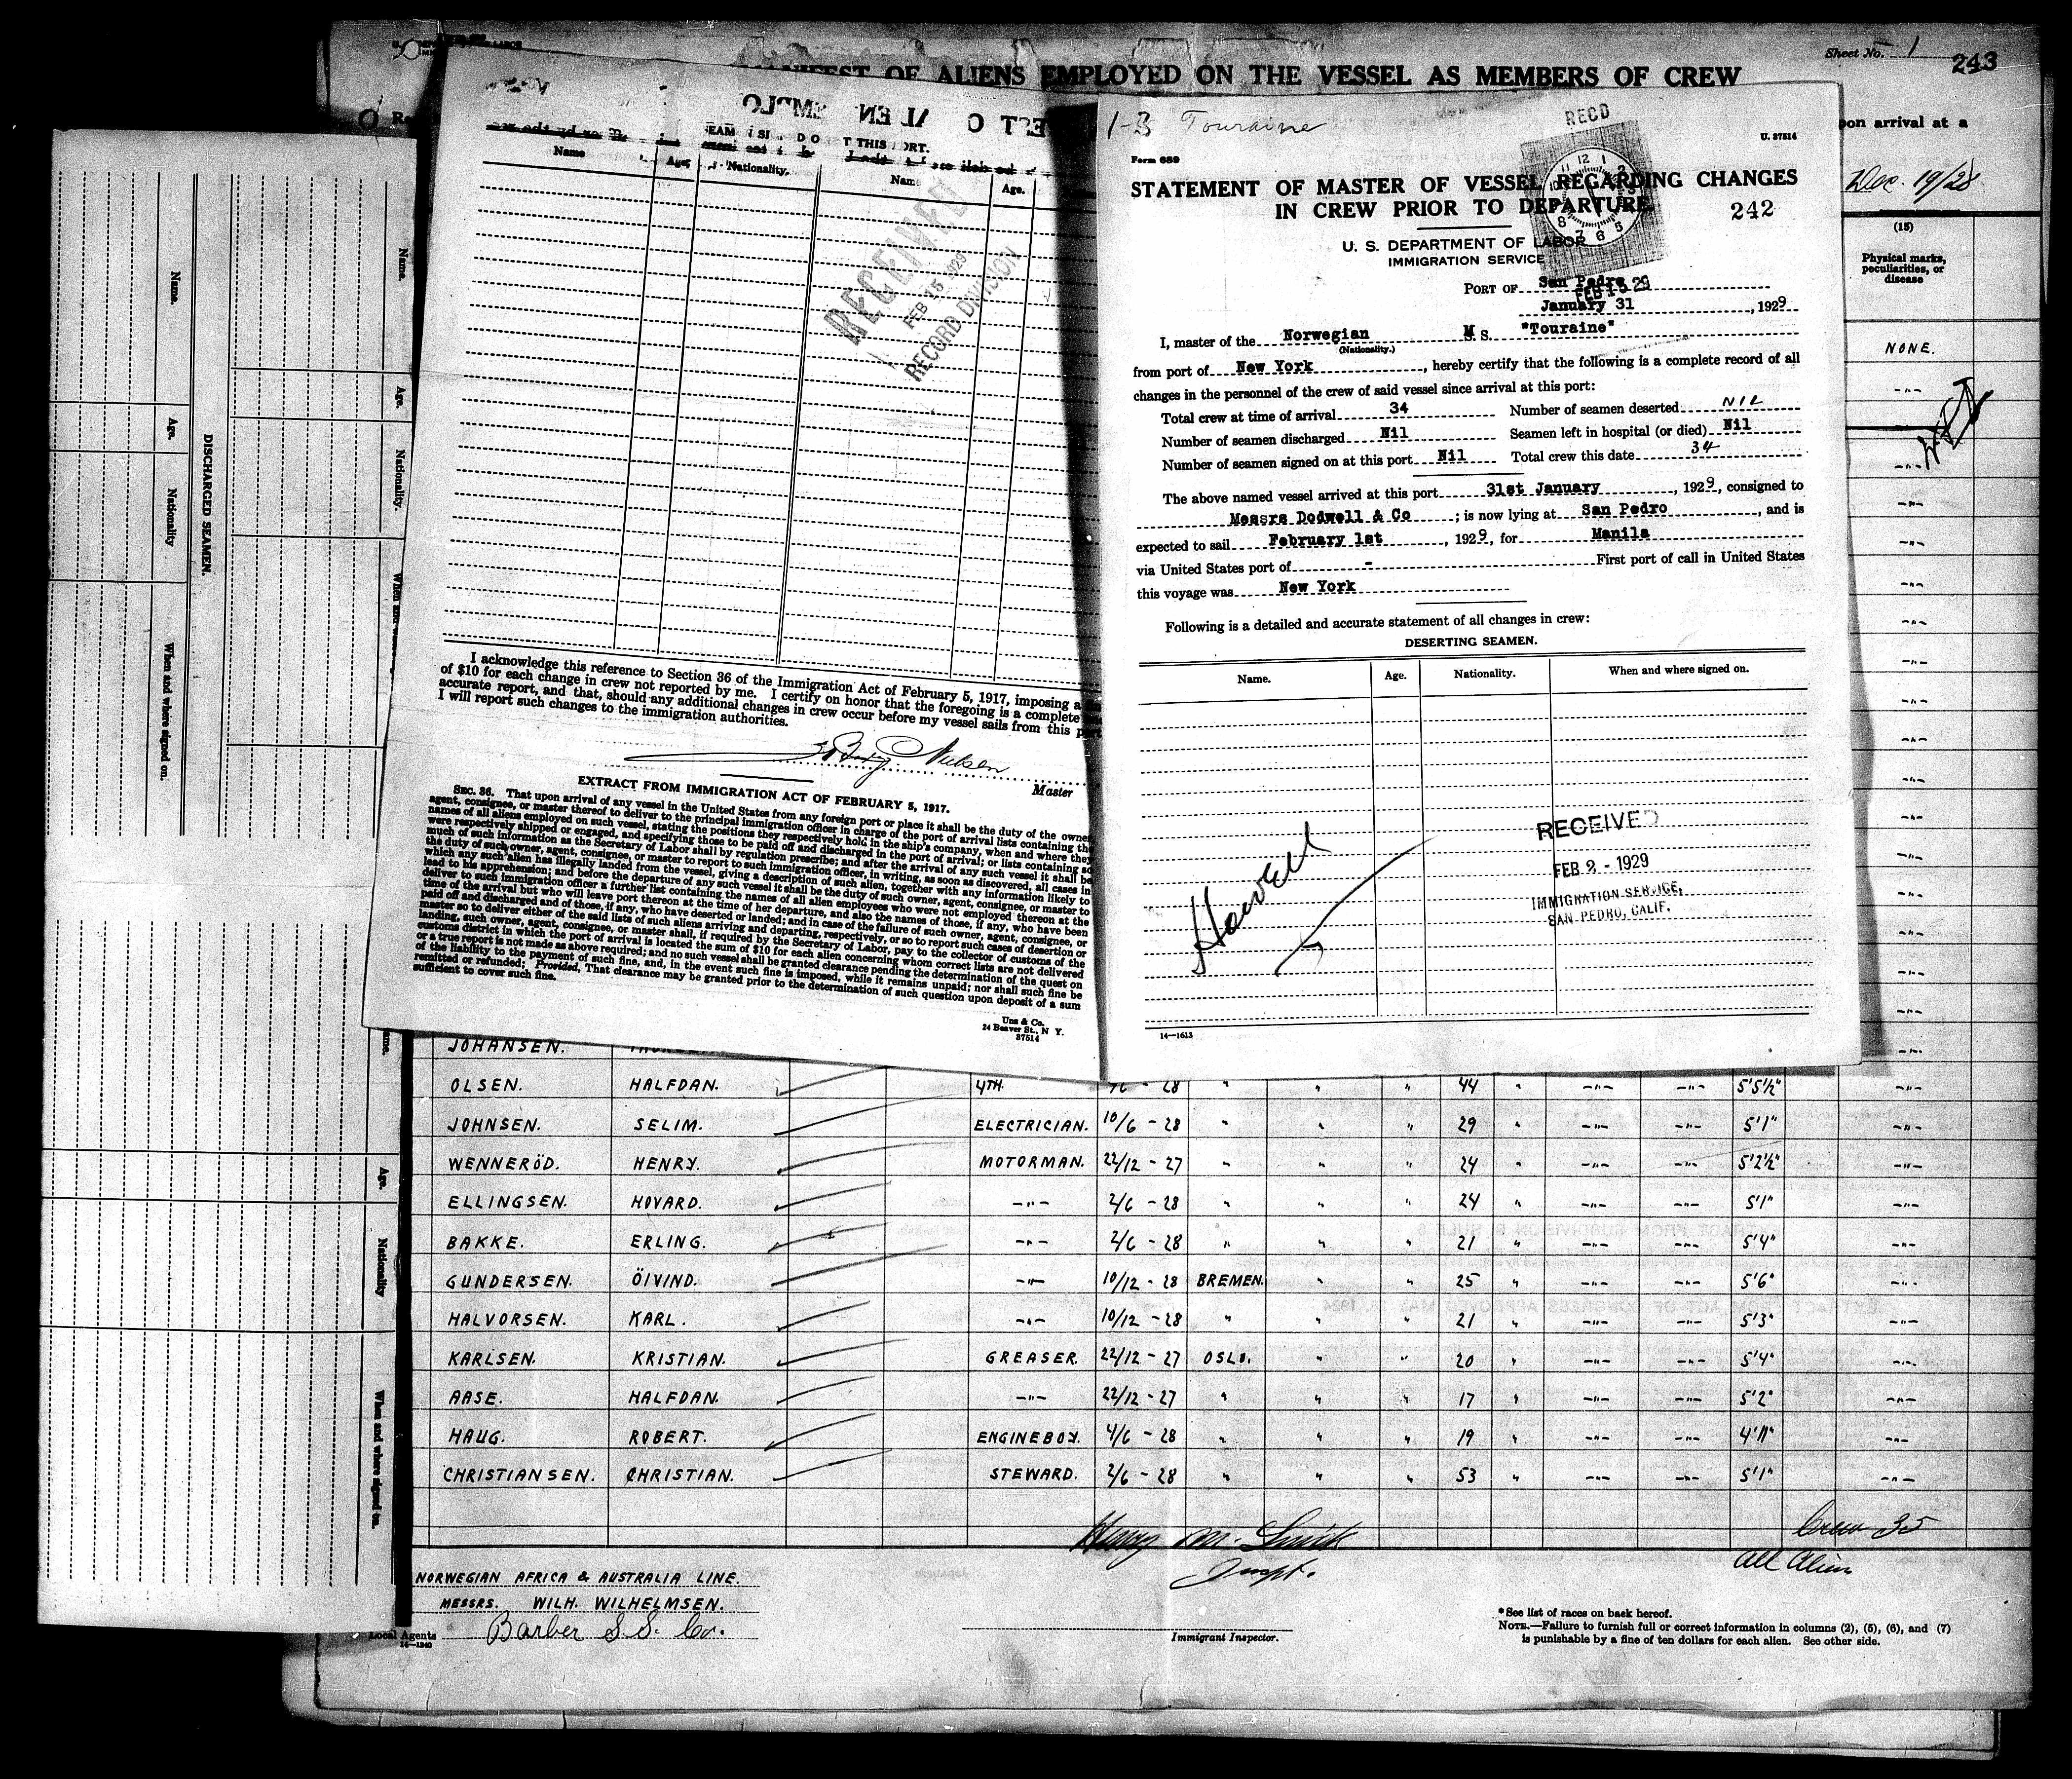 Sheet No. 1
243
MANIFEST OF ALIENS EMPLOYED ON THE VESSEL AS MEMBERS OF CREW
upon arrival at a
Dec. 19/28
(15)
Physical marks,
peculiarities, or
disease
NONE.
Name.
Age.
Nationality
When and where signed on.
DISCHARGED SEAMEN.
Name.
Age.
Nationality.
Age.
Nationality
When and where signed on.
THIS PORT.
Name
Age.
Nationality.
Name
Age.
RECEIVED
FEB 15 1929
RECORD DIVISION
I acknowledge this reference to Section 36 of the Immigration Act of February 5, 1917, imposing a
of $10 for each change in crew not reported by me. I certify on honor that the foregoing is a complete
accurate report, and that, should any additional changes in crew occur before my vessel sails from this port
I will report such changes to the immigration authorities.
Nielsen
Master
EXTRACT FROM IMMIGRATION ACT OF FEBRUARY 5, 1917.
SEC. 36. That upon arrival of any vessel in the United States from any foreign port or place it shall be the duty of the owner,
agent, consignee, or master thereof to deliver to the principal immigration officer in charge of the port of arrival lists containing the
names of all aliens employed on such vessel, stating the positions they respectively hold in the ship's company, when and where they
were respectively shipped or engaged, and specifying those to be paid off and discharged in the port of arrival; or lists containing so
much of such information as the Secretary of Labor shall by regulation prescribe; and after the arrival of any such vessel it shall be
the duty of such owner, agent, consignee, or master to report to such immigration officer, in writing, as soon as discovered, all cases in
which any such alien has illegally landed from the vessel, giving a description of such alien, together with any information likely to
lead to his apprehension; and before the departure of any such vessel it shall be the duty of such owner, agent, consignee, or master to
deliver to such immigration officer a further list containing the names of all alien employees who were not employed thereon at the
time of the arrival but who will leave port thereon at the time of her departure, and also the names of those, if any, who have been
paid off and discharged and of those, if any, who have deserted or landed; and in case of the failure of such owner, agent, consignee, or
master so to deliver either of the said lists of such aliens arriving and departing, respectively, or so to report such cases of desertion or
landing, such owner, agent, consignee, or master shall, if required by the Secretary of Labor, pay to the collector of customs of the
customs district in which the port of arrival is located the sum of $10 for each alien concerning whom correct lists are not delivered
or a true report is not made as above required; and no such vessel shall be granted clearance pending the determination of the quest on
of the liability to the payment of such fine, and, in the event such fine is imposed, while it remains unpaid; nor shall such fine be
remitted or refunded; Provided, That clearance may be granted prior to the determination of such question upon deposit of a sum
sufficient to cover such fine.
Unz & Co.
24 Beaver St., N Y.
37514
1-3 Touraine
RECD
U. 37514
Form 689
STATEMENT OF MASTER OF VESSEL REGARDING CHANGES
IN CREW PRIOR TO DEPARTURE
242
U. S. DEPARTMENT OF LABOR
IMMIGRATION SERVICE
PORT OF San Pedro
FEB 15 29
January 31, 1929
I, master of the Norwegian M S. "Touraine"
(Nationality.)
from port of New York, hereby certify that the following is a complete record of all
changes in the personnel of the crew of said vessel since arrival at this port:
Total crew at time of arrival 34 Number of seamen deserted NIL
Number of seamen discharged Nil Seamen left in hospital (or died) Nil
Number of seamen signed on at this port Nil Total crew this date 34
The above named vessel arrived at this port 31st January, 1929, consigned to
Messrs Dodwell & Co; is now lying at San Pedro, and is
expected to sail February 1st, 1929, for Manila
via United States port of - First port of call in United States
this voyage was New York
Following is a detailed and accurate statement of all changes in crew:
DESERTING SEAMEN.
Name. Age. Nationality. When and where signed on.
Howell
RECEIVED
FEB 2 - 1929
IMMIGRATION SERVICE,
SAN PEDRO, CALIF.
14—1613
JOHANSEN.
OLSEN. HALFDAN. 4TH. 28 " " " 44 " -"- -"- 5'5½" -"-
JOHNSEN. SELIM. ELECTRICIAN. 10/6 - 28 " " " 29 " -"- -"- 5'1" -"-
WENNERÖD. HENRY. MOTORMAN. 22/12 - 27 " " " 24 " -"- -"- 5'2½" -"-
ELLINGSEN. HOVARD. -"- 2/6 - 28 " " " 24 " -"- -"- 5'1" -"-
BAKKE. ERLING. -"- 2/6 - 28 " " " 21 " -"- -"- 5'4" -"-
GUNDERSEN. ÖIVIND. -"- 10/12 - 28 BREMEN. " " 25 " -"- -"- 5'6" -"-
HALVORSEN. KARL. -"- 10/12 - 28 " " " 21 " -"- -"- 5'3" -"-
KARLSEN. KRISTIAN. GREASER. 22/12 - 27 OSLO. " " 20 " -"- -"- 5'4" -"-
AASE. HALFDAN. -"- 22/12 - 27 " " " 17 " -"- -"- 5'2" -"-
HAUG. ROBERT. ENGINEBOY. 4/6 - 28 " " " 19 " -"- -"- 4'11" -"-
CHRISTIANSEN. CHRISTIAN. STEWARD. 2/6 - 28 " " " 53 " -"- -"- 5'1" -"-
Henry M. Smick
Inspt.
Crew 35
All Aliens
NORWEGIAN AFRICA & AUSTRALIA LINE.
MESSRS. WILH. WILHELMSEN.
Local Agents Barber S.S. Co.
14—1240
Immigrant Inspector.
*See list of races on back hereof.
NOTE.—Failure to furnish full or correct information in columns (2), (5), (6), and (7)
is punishable by a fine of ten dollars for each alien. See other side.